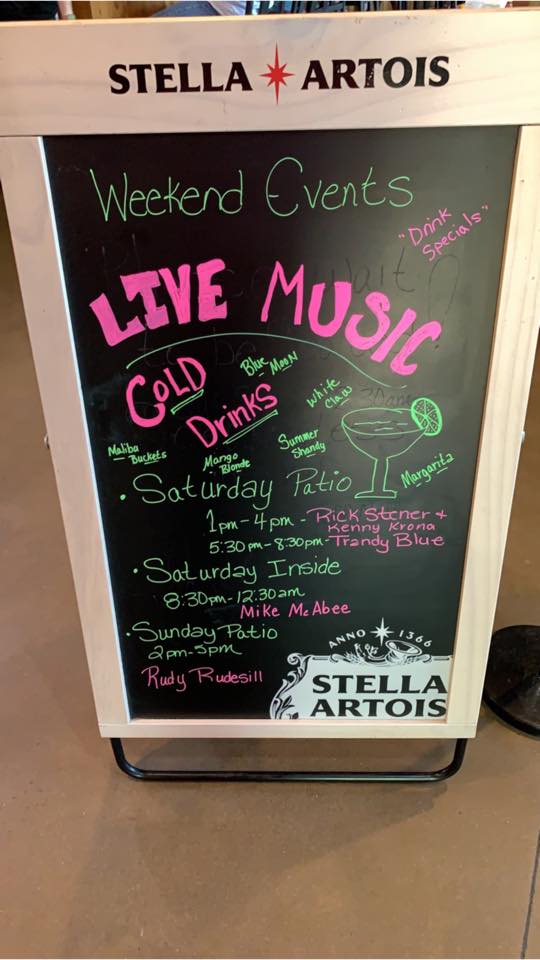 STELLA ARTOIS
Weekend Events
"Drink
Specials"
LIVE MUSIC
COLD
Drinks
Blue Moon
White
Claw
Maliba
Buckets
Mango
Blonde
Summer
Shandy
Margarita
• Saturday Patio
1pm-4pm - Rick Stener +
Kenny Krona
5:30pm-8:30pm- Trandy Blue
• Saturday Inside
8:30pm-12:30am
Mike McAbee
• Sunday Patio
2pm-5pm
Rudy Rudesill
ANNO 1366
STELLA
ARTOIS